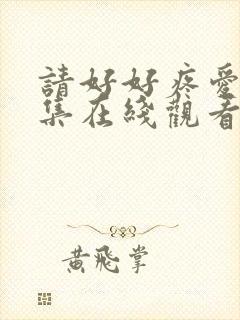 請好好疼愛
集在綫觀看
黃飛掌